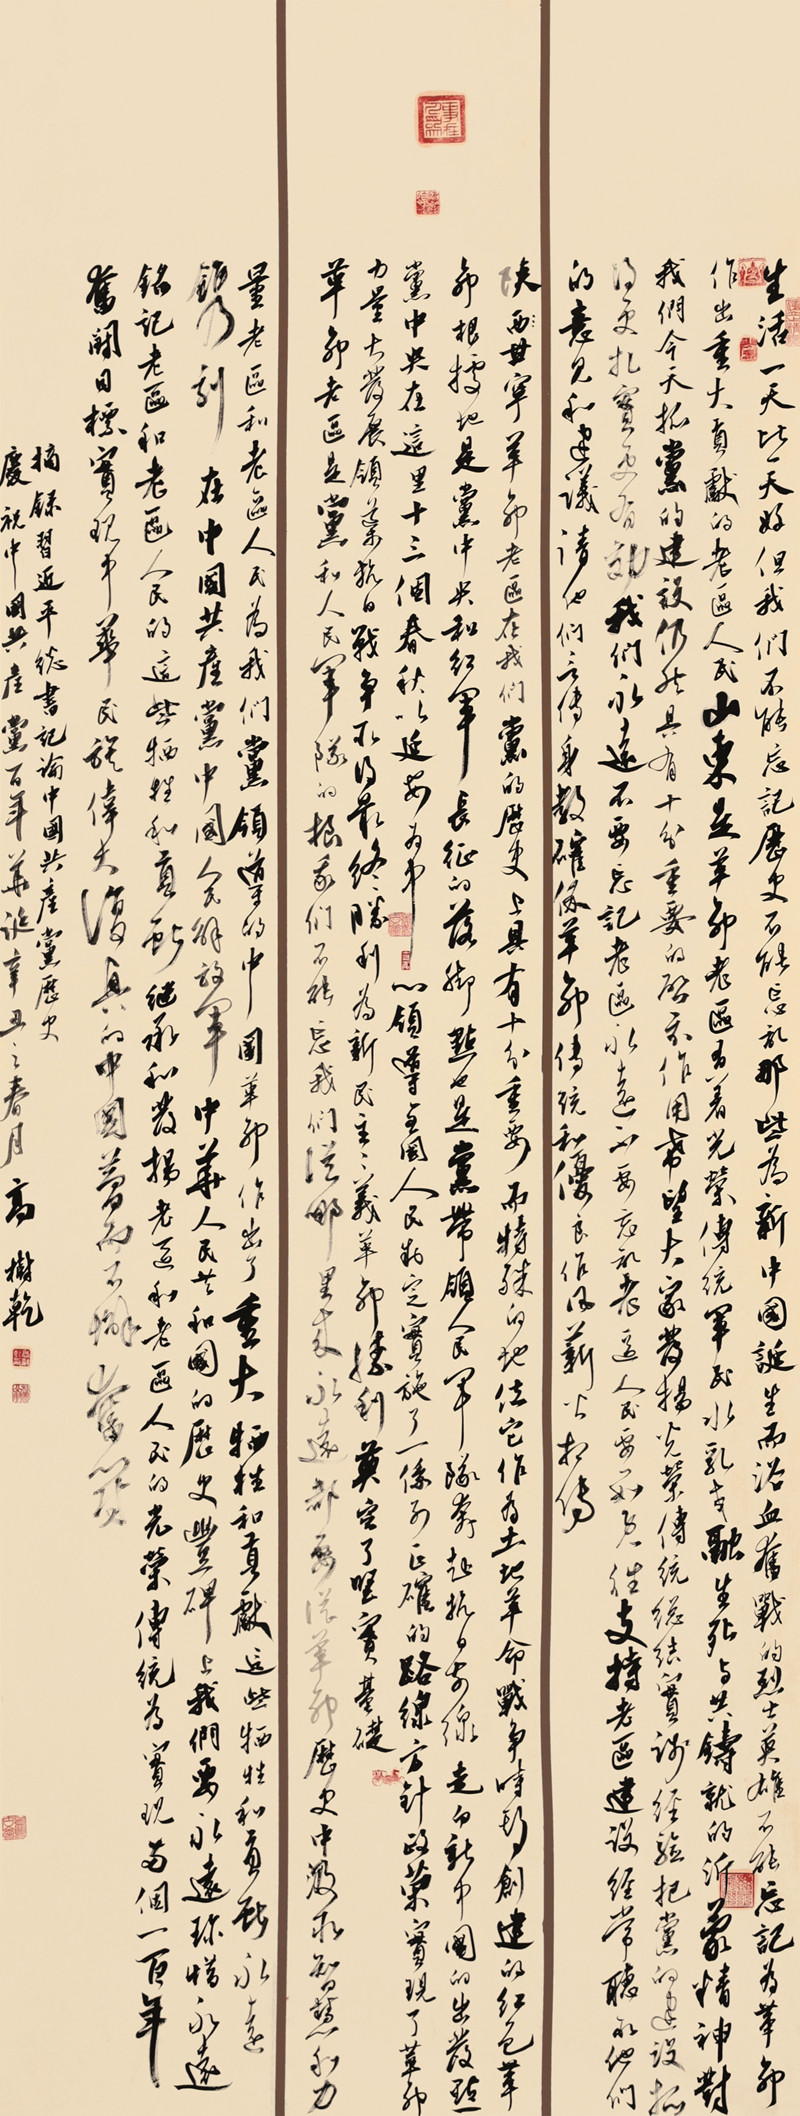 生活一天比一天好但我们不能忘記歷史不能忘記那些為新中國誕生而浴血奮戰的烈士英雄不能忘記為革命
作出重大貢獻的老區人民山東是革命老區有着光榮傳統軍民水乳交融生死与共鑄就的沂蒙精神對
我們今天抓黨的建設仍然具有十分重要的啓示作用希望大家發揚光榮傳統總結實践經驗把黨的建設抓
得更扎實更有效我們永遠不要忘記老區永遠不要忘記老區人民要一如既往支持老區建設經常聽取他们
的意見和建議請他們言傳身教確保革命傳統和優良作风薪火相傳
陕西甘寧革命老區在我们黨的歷史上具有十分重要而特殊的地位它作为土地革命戰争時期創建的红色革
命根據地是黨中央和红軍長征的落脚點也是黨帶領人民軍隊奔赴抗日前線走向新中國的出發點
黨中央在這里十三個春秋以延安为中心領導全國人民制定實施了一係列正確的路線方針政策實現了革命
力量大發展領導抗日戰争取得最終勝利为新民主主義革命勝利奠定了堅實基礎
革命老區是黨和人民軍隊的根我们不能忘我们從哪里来永遠都要從革命歷史中汲取智慧和力
量老區和老區人民为我们黨領導的中國革命作出了重大犧牲和貢獻這些犧牲和貢献永遠
鎸刻在中國共產黨中國人民解放軍中華人民共和國的歷史豐碑上我們要永遠珍惜永遠
銘記老區和老區人民的這些犧牲和貢献继承和發揚老區和老區人民的光榮傳統为實現两個一百年
奮鬪目標實現中華民族偉大復興的中國夢而不懈奮鬪
摘録習近平總書記論中國共產黨歷史
慶祝中國共產黨百年華誕辛丑之春月高樹乾